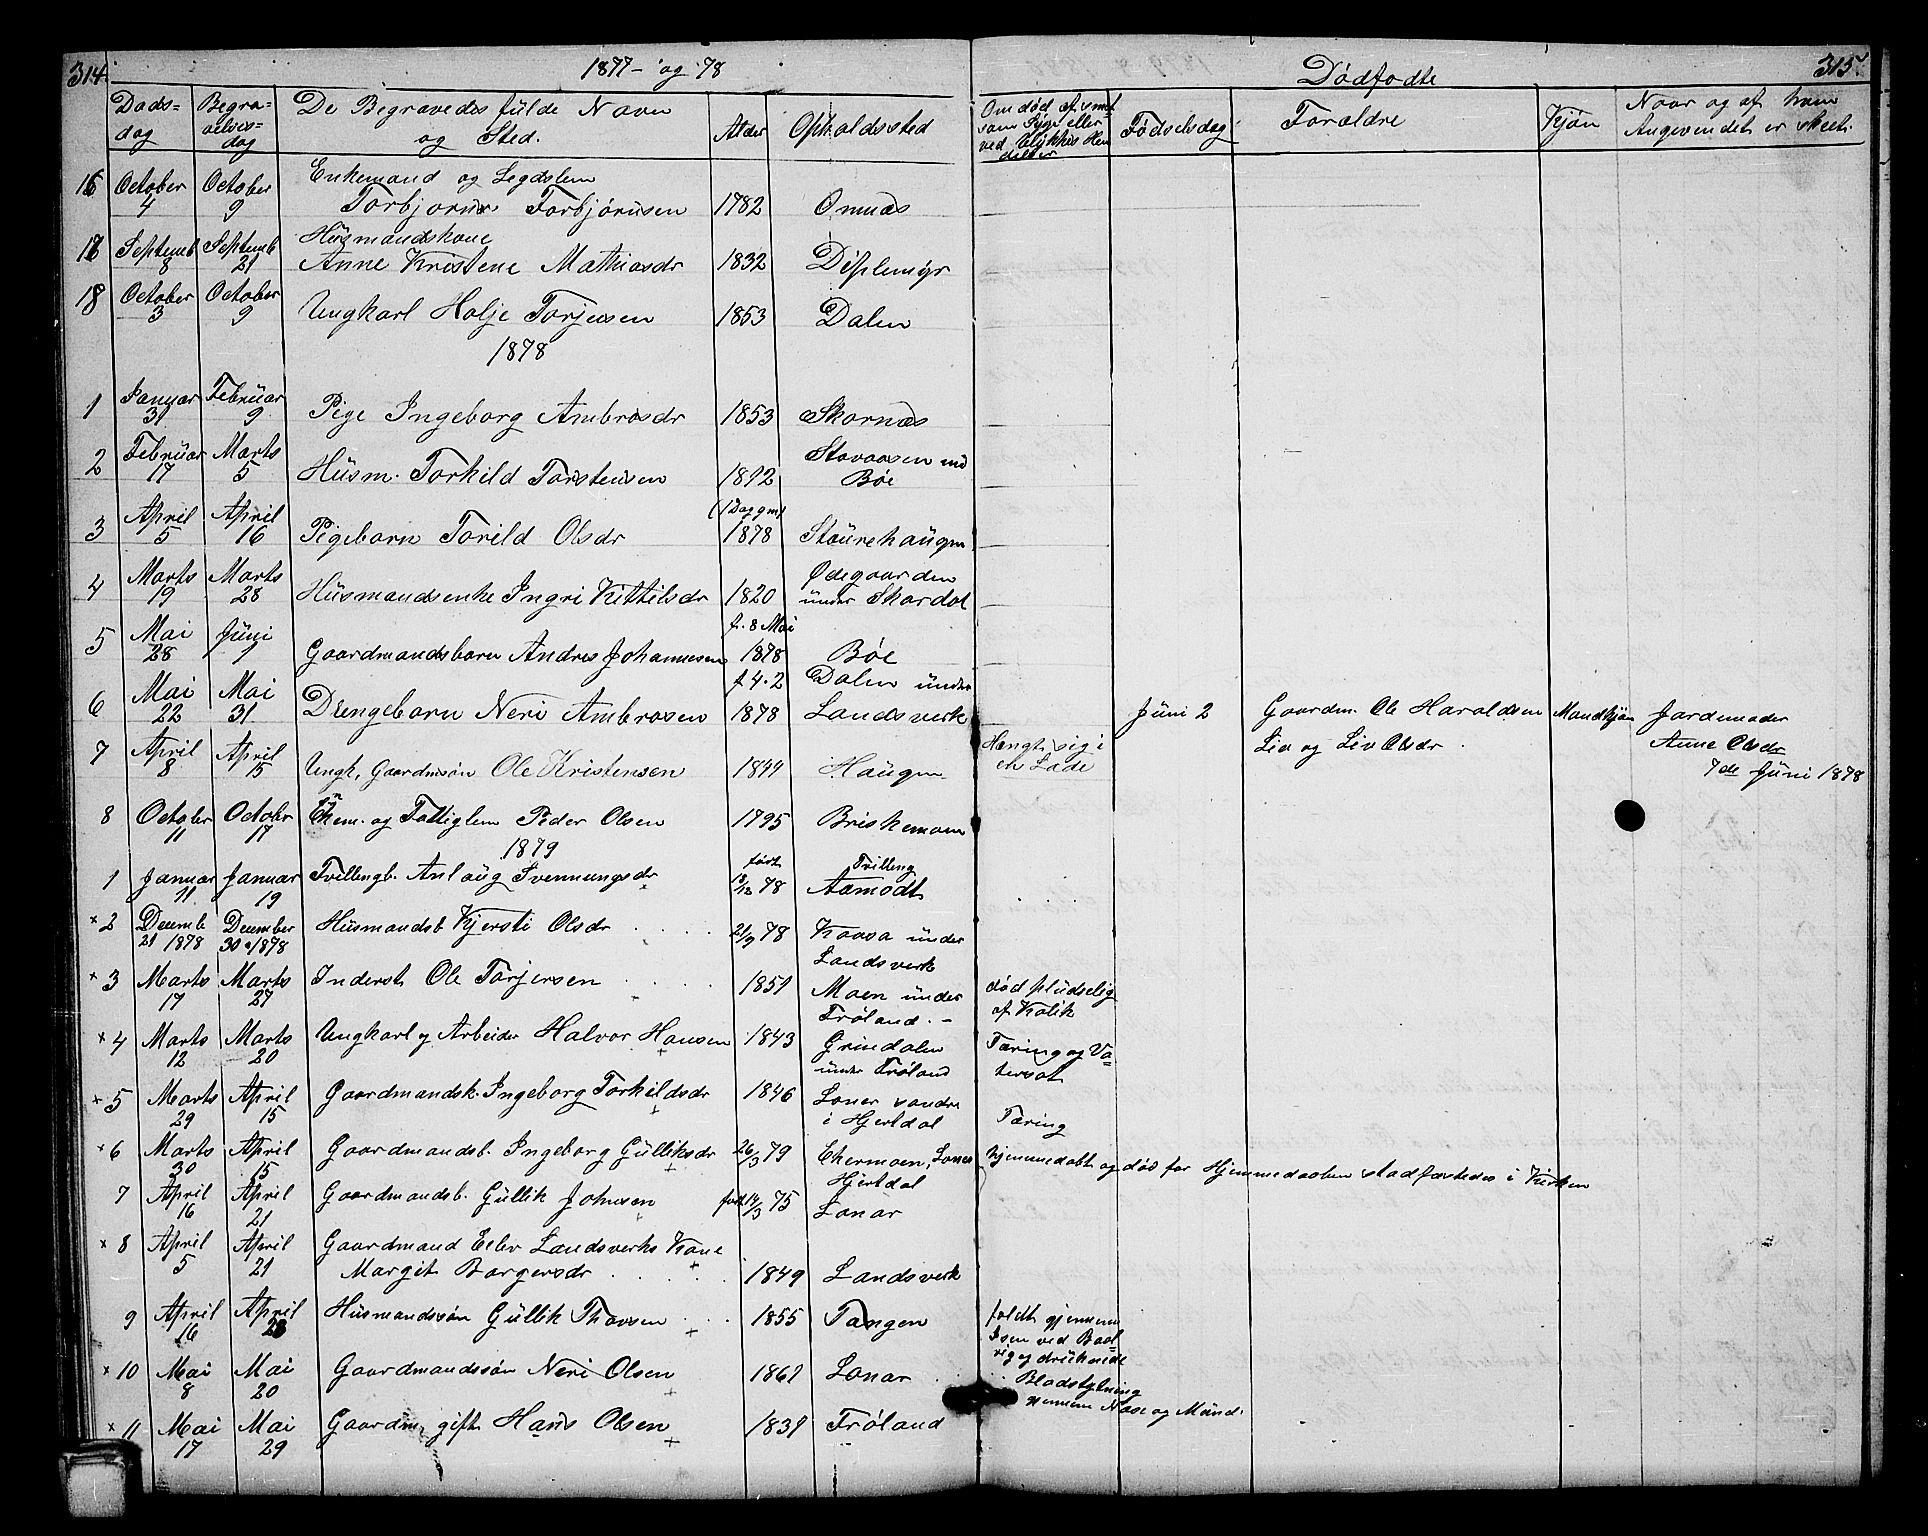 314.
1877 - og 78
Dødfødte
315.
Døds= dag
Begra= velses= dag
De Begravedes fulde Navn og Sted.
Alder
Opholdssted
Om død af smit som Syge eller ved Ulykkes Hen delser
Fødselsdag
Forældre
Kjøn
Naar og af hvem Angivendet er skeet.
16 October 4 October 9 Enkemand og Legdslem
Torbjørn Torbjørnsen 1782 Omnæs
17 Septemb 8 Septemb 21 Husmandskone
Anne Kristene Mathiasdr 1832 Diplemyr
18 October 3 October 9 Ungkarl Holje Torjusen 1853 Dalen
1878
1 Januar 31 Februar 9 Pige Ingeborg Ambrosdr 1853 Skornæs
2 Februar 17 Marts 5 Husm. Torkild Torstensen 1892 Stavaasen und Bøe
3 April 5 April 16 Pigebarn Torild Olsdr (1 Dag gml) 1878 Staurehaugen
4 Marts 19 Marts 28 Husmandsenke Ingri Kittilsdr 1820 Ødegaarden under Skardal
5 Mai 28 Juni 1 Gaardmandsbarn Andres Johannesen f. 8 Mai 1878 Bøe
6 Mai 22 Mai 31 Drengebarn Neri Ambrosen f 4.2 1878 Dalen under Landsverk
Juni 2 Gaardm. Ole Haraldsen Mandkjøn Jordemoder
Lia og Liv Olsdr. Anne Olsdr
7de Juni 1878
7 April 8 April 15 Ungk, Gaardmsøn Ole Kristensen 1844 Haugen Hængt sig i en Lade
8 October 11 October 17 Enkem. og Fattiglem Peder Olsen 1795 Briskemoen
1879
1 Januar 11 Januar 19 Tvillingb. Anlaug Svennungsdr født 18/12 78 Tvilling Aamodt
× 2 Decemb 21 1878 December 30 1878 Husmandsb Kjersti Olsdr 21/9 78 Kaasa under Landsverk
× 3 Marts 17 Marts 27 Inderst Ole Torjersen 1851 Moen under Frøland. - død pludselig af Kolik
× 4 Marts 12 Marts 20 Ungkarl og Arbeider Halvor Hansen 1843 Grindalen under Frøland Tæring og Va= tersot
× 5 Marts 29 April 15 Gaardmandsk. Ingeborg Torkildsdr 1846 Loner søndre i Hjertdal Tæring
× 6 Marts 30 April 15 Gaardmandsb. Ingeborg Gulliksdr 26/3 79 Ekermoen, Loner Hjertdal hjemmedøbt og død før Hjemmedaaben stadfæstedes i Kirken
7 April 16 April 21 Gaardmandsb. Gullik Johnsen født 14/3 75 Lonar
× 8 April 5 April 21 Gaardmand Eilev Landsverks Kone
Margit Borgersdr 1849 Landsverk
9 April 16 April 28 Husmandssøn Gullik Thovsen 1855 Tangen faldt gjennem Isen ved Baal vig og druknede
× 10 Mai 8 Mai 20 Gaardmandssøn Neri Olsen 1861 Lonar Blodstytning gjennem Næse og Mund.
× 11 Mai 17 Mai 29 Gaardm. gift Hans Olsen 1839 Frøland